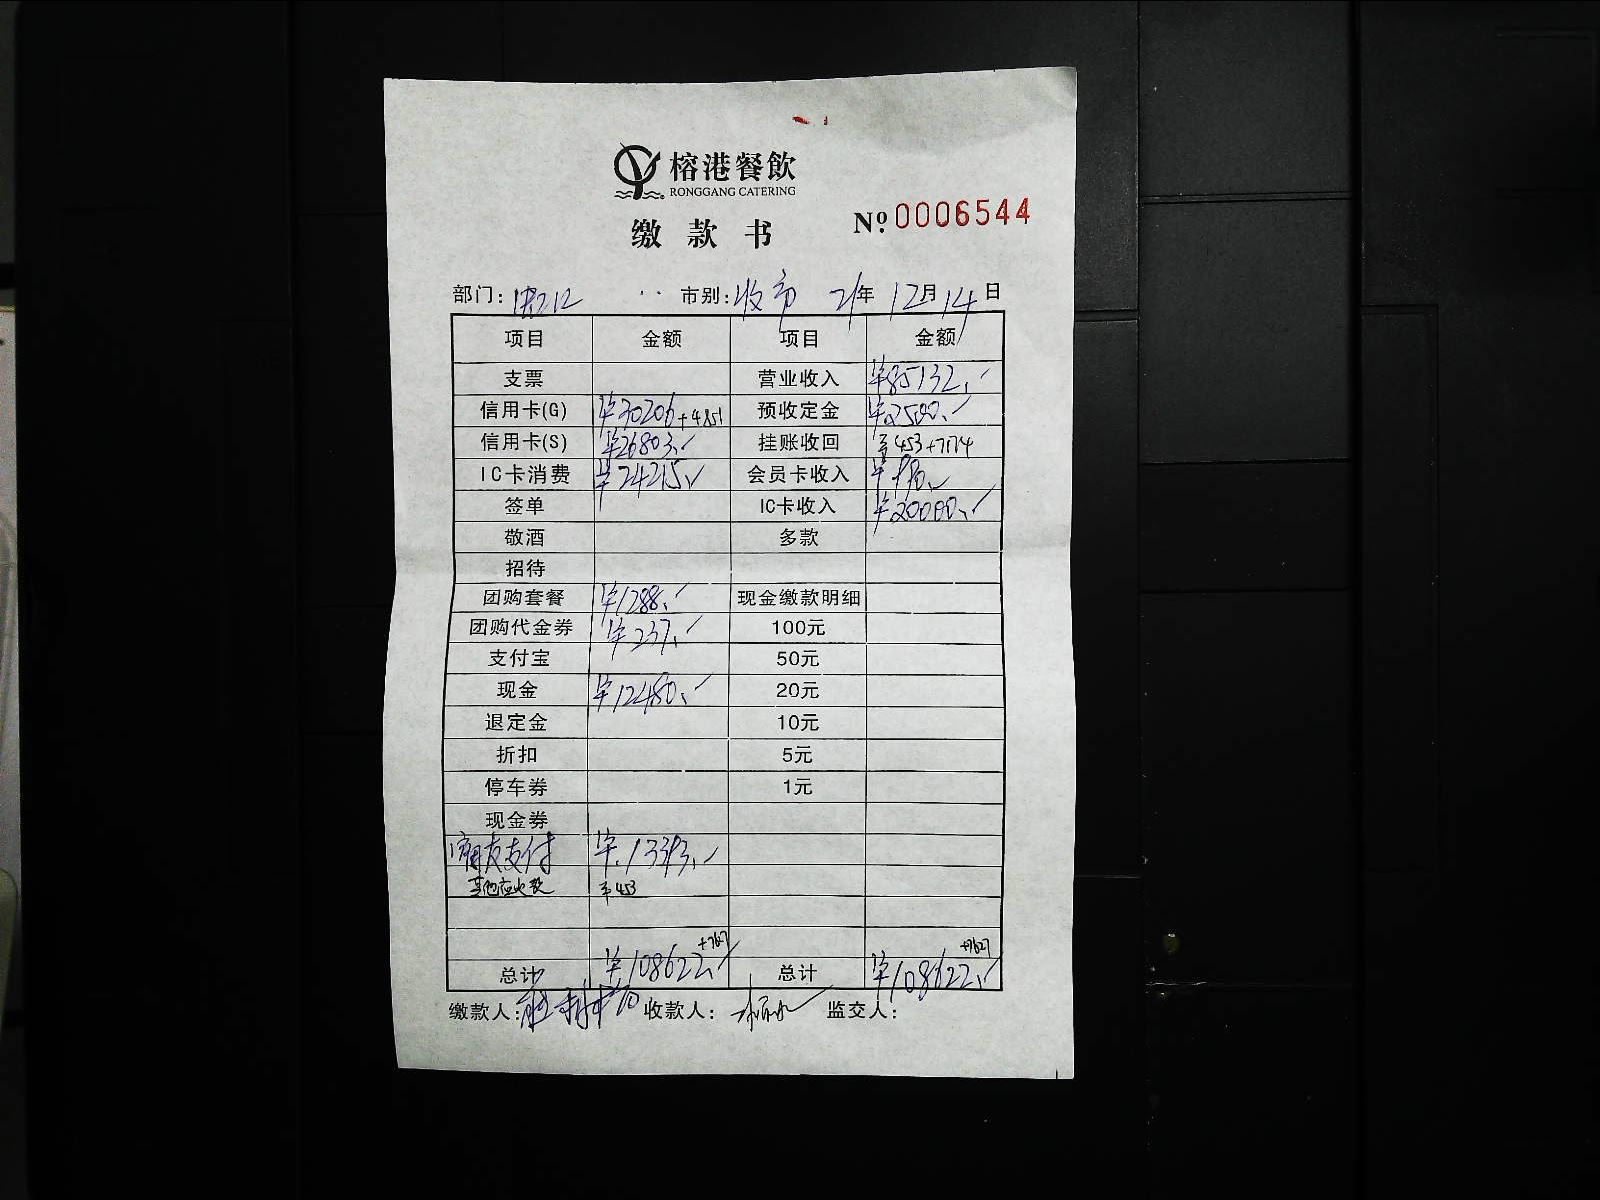 榕港餐飲
RONGGANG CATERING
缴款书 №0006544
部门: 市别:收市 21年12月14日
项目 金额 项目 金额
支票 营业收入 ¥85132
信用卡(G) ¥30206+4851 预收定金 ¥2500
信用卡(S) ¥26803 挂账收回 ¥453+7174
IC卡消费 ¥24215 会员卡收入
签单 IC卡收入 ¥20000
敬酒 多款
招待
团购套餐 ¥1288 现金缴款明细
团购代金券 ¥237 100元
支付宝 50元
现金 ¥12480 20元
退定金 10元
折扣 5元
停车券 1元
现金券
支付 ¥13393
其他应收款 ¥453
+7627 +7627
总计 ¥108622 总计 ¥108622
缴款人: 收款人: 监交人: